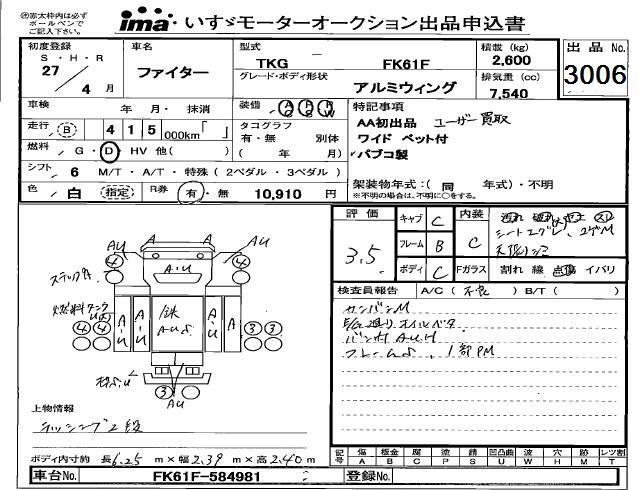 ㊟赤太枠内は必ず
ボールペンで
ご記入下さい。
ima いすゞモーターオークション出品申込書
初度登録 車名 型式 積載 (kg) 出品 No.
S・H・R TKG FK61F 2,600
27 ファイター グレード・ボディ形状 排気量 (cc) 3006
4 月 アルミウィング 7,540
車検 年 月・抹消 装備 特記事項
走行 B 4 1 5 000km「 」 タコグラフ AA初出品 ユーザー買取
有・無 別体 ワイド ベット付
燃料 G・D・HV 他( ) ( 年 月) パブコ製
シフト 6 M/T・A/T・特殊 (2ペダル・3ペダル)
架装物年式：( 同 年式)・不明
※不明の場合は、不明に○をする。
色 白 (指定) R券 有・無 10,910 円
評価 キャブ C 内装
3.5 フレーム B C
ボディ C Fガラス 割れ 線 点傷 イバリ
検査員報告 A/C( 不良 ) B/T( )
カンバンM
フレームS、1部PM
AU AU
A A
4 A・U 4
ステップA
燃料タンク
4 4 A-U A-U 鉄 A-U A 3 3
AUS
3
AU
上物情報
ラッシング2段
ボディ内寸約 長 6.25 m × 幅 2.39 m × 高 2.40 m
記号 傷 板金 腐 塗 錆 凹凸曲 波 穴 跡 レツ割
A B C P S U W H M T
車台No. FK61F-584981 登録No.